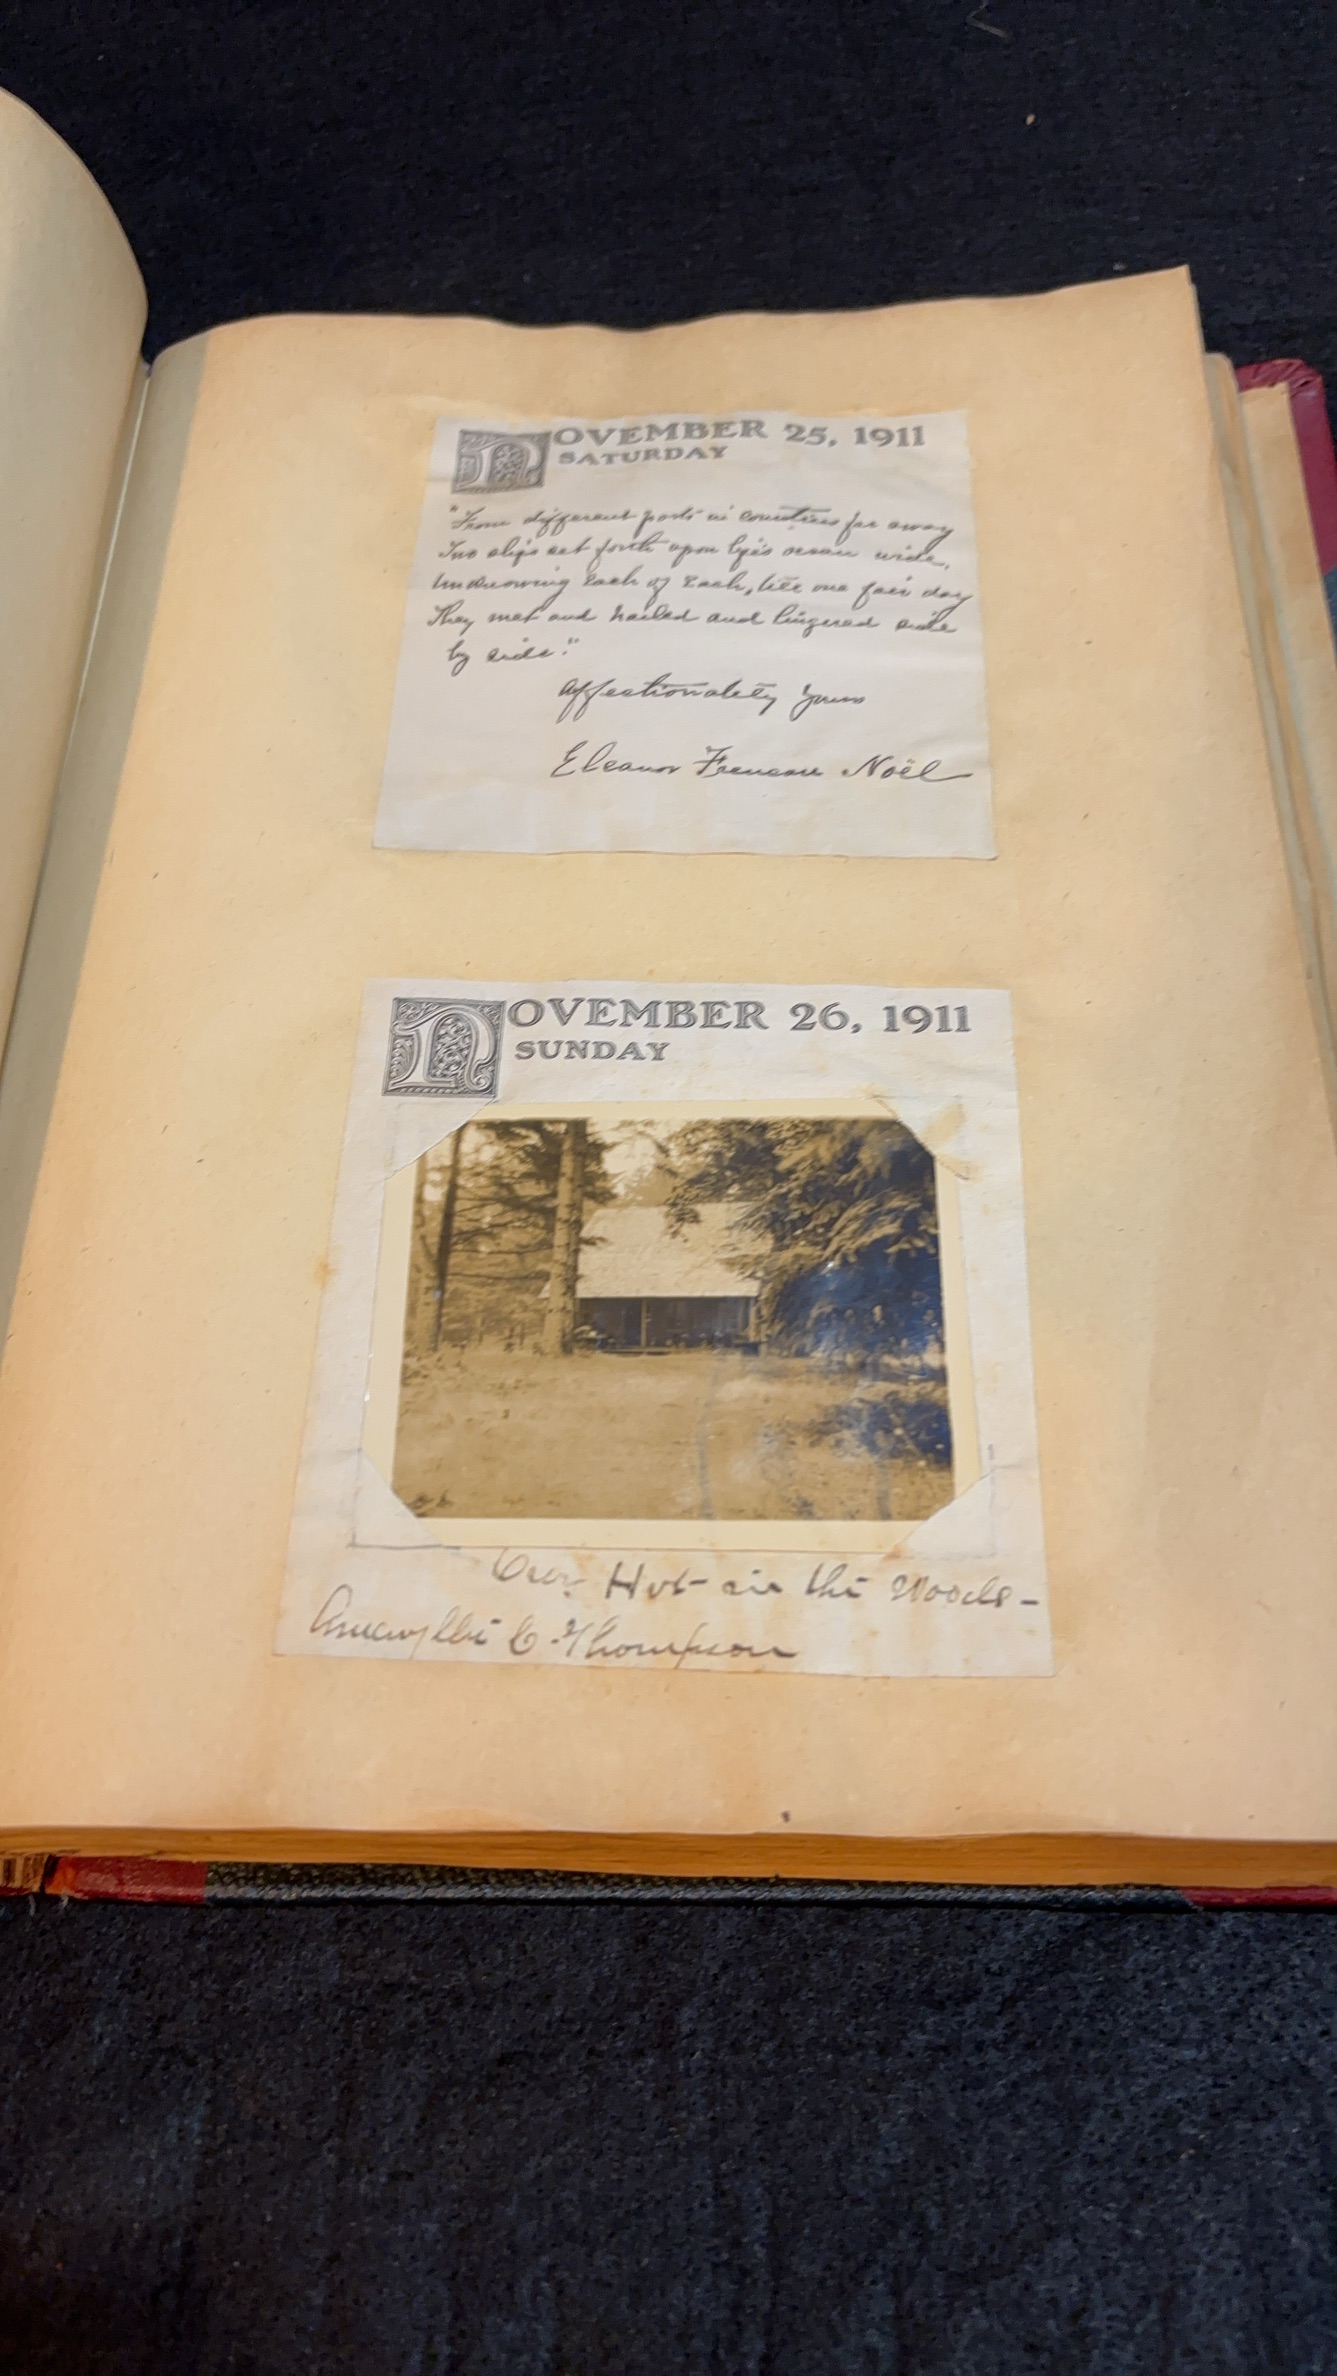 NOVEMBER 25, 1911
SATURDAY
"From different ports in countries far away
Two ships set forth upon life's ocean wide,
Unknowing each of each, till one fair day
They met and hailed and lingered side
by side."
Affectionately Yours
Eleanor Noël
NOVEMBER 26, 1911
SUNDAY
Our Hut in the Woods -
C. Thompson